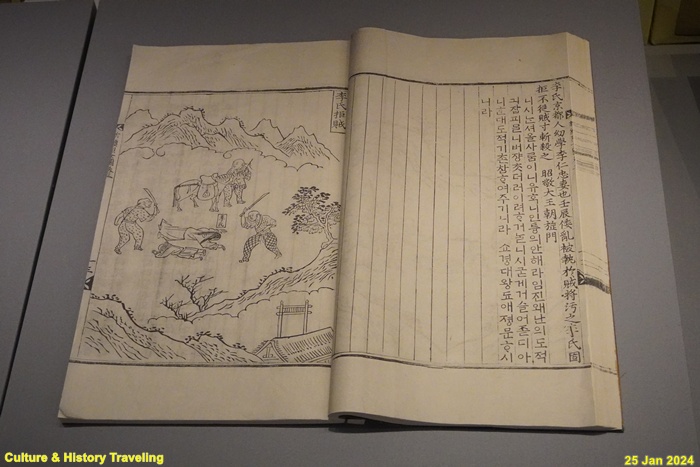 李氏賊
李氏京都人幼學李仁忠妻也壬辰倭亂被執於賊將汚之李氏固
拒不從賊寸斬殺之 昭敬大王朝旌門
니시ᄂᆞᆫ셔울사ᄅᆞᆷ이니유ᄒᆞᆨ니인튱의안해라임진왜난의도적
쟝ᄎᆞᆺ더러이려ᄒᆞ거ᄂᆞᆯ니시굳게거슬어졷디아
니ᄒᆞᆫ대도적기촌참ᄒᆞ여주기니라 쇼경대왕됴애졍문ᄒᆞ시
니라
Culture & History Traveling
25 Jan 2024